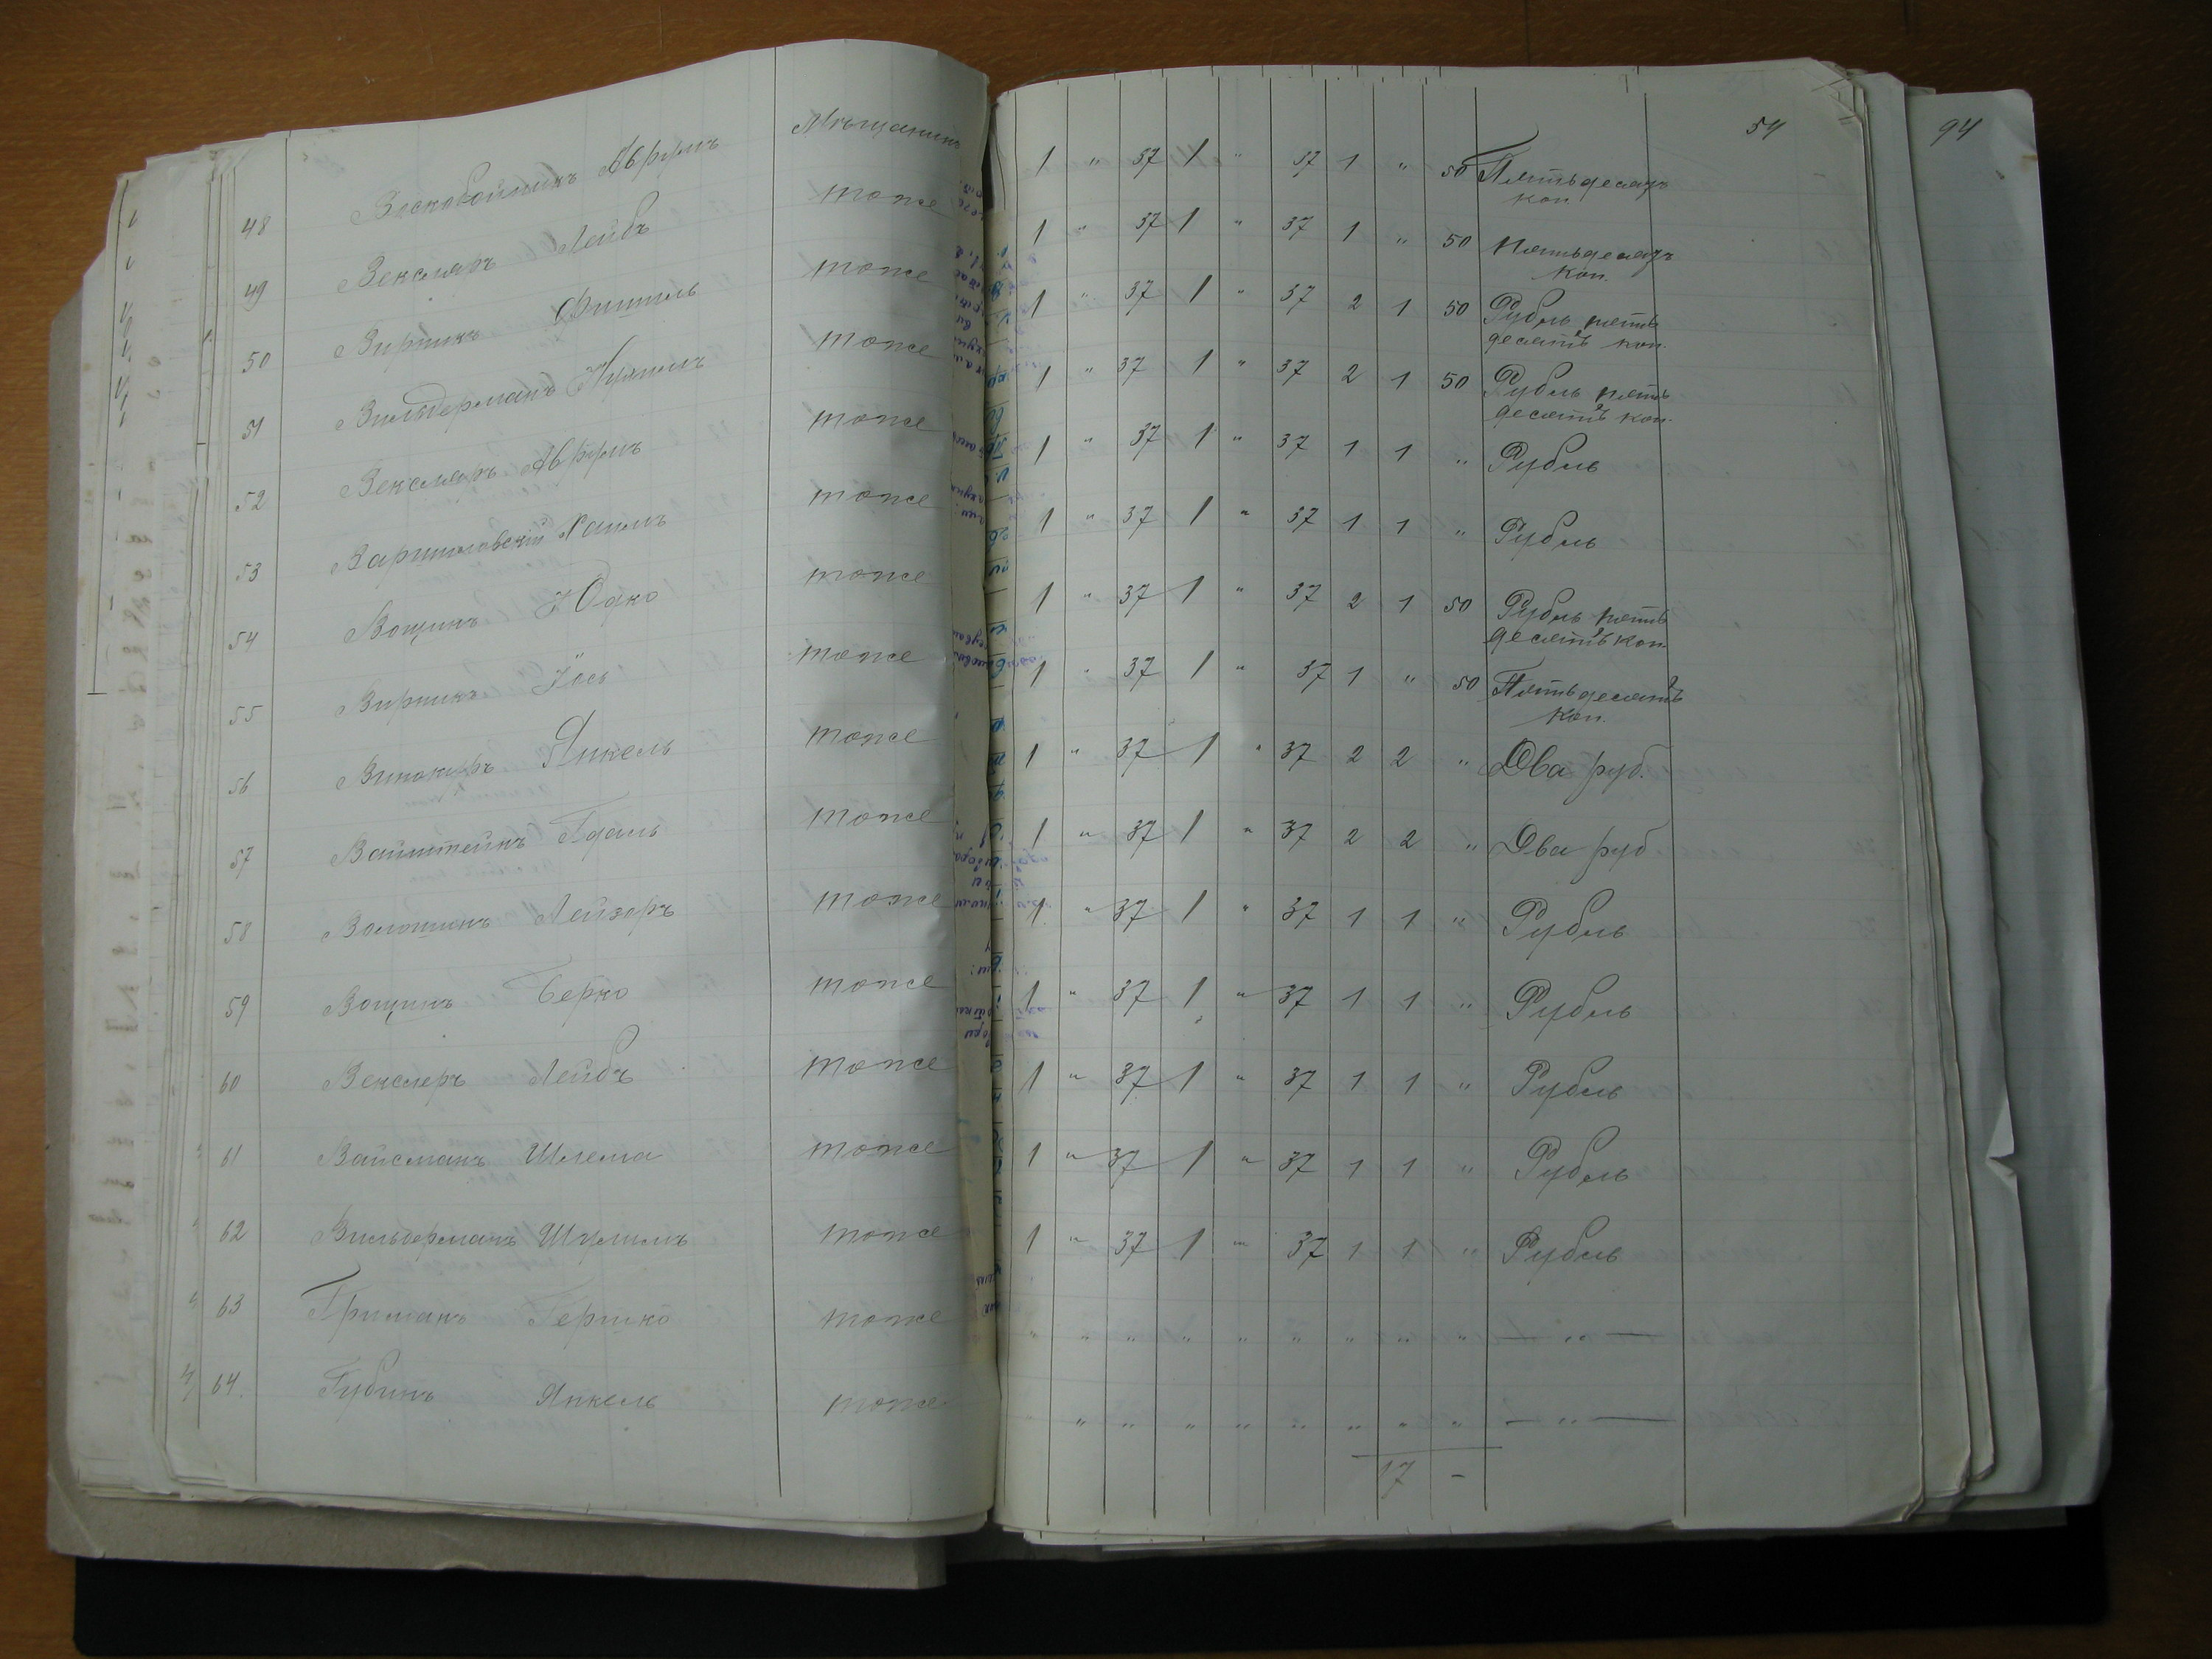 54
94
48 Воскобойникъ Аврумъ Мѣщанинъ 1 " 37 1 " 37 1 " 50 Пятьдесятъ
коп
49 Векслеръ Лейбъ тоже 1 " 37 1 " 37 1 " 50 Пятьдесятъ
коп.
50 Вирникъ Фишель тоже 1 " 37 1 " 37 2 1 50 Рубль пять
десятъ коп.
51 Вильдерманъ тоже 1 " 37 1 " 37 2 1 50 Рубль пять
десятъ коп.
52 Векслеръ Аврумъ тоже 1 " 37 1 " 37 1 1 " Рубль
53 Хаимъ тоже 1 " 37 1 " 37 1 1 " Рубль
54 Вощинъ Юдко тоже 1 " 37 1 " 37 2 1 50 Рубль пять
десятъ коп.
55 Вирникъ Іось тоже 1 " 37 1 " 37 1 " 50 Пятьдесятъ
коп.
56 Винокуръ Янкель тоже 1 " 37 1 " 37 2 2 " Два руб.
57 Вайнштейнъ Гдаль тоже 1 " 37 1 " 37 2 2 " Два руб
58 Волошинъ Лейзоръ тоже 1 " 37 1 " 37 1 1 " Рубль
59 Вощинъ Берко тоже 1 " 37 1 " 37 1 1 " Рубль
60 Векслеръ Лейбъ тоже 1 " 37 1 " 37 1 1 " Рубль
61 Вайсманъ Шлема тоже 1 " 37 1 " 37 1 1 " Рубль
62 Вильдерманъ Шулимъ тоже 1 " 37 1 " 37 1 1 " Рубль
63 Гершко тоже " " " " " " " " " — " —
64. Губинъ Янкель тоже " " " " " " " " " — " —
17 -